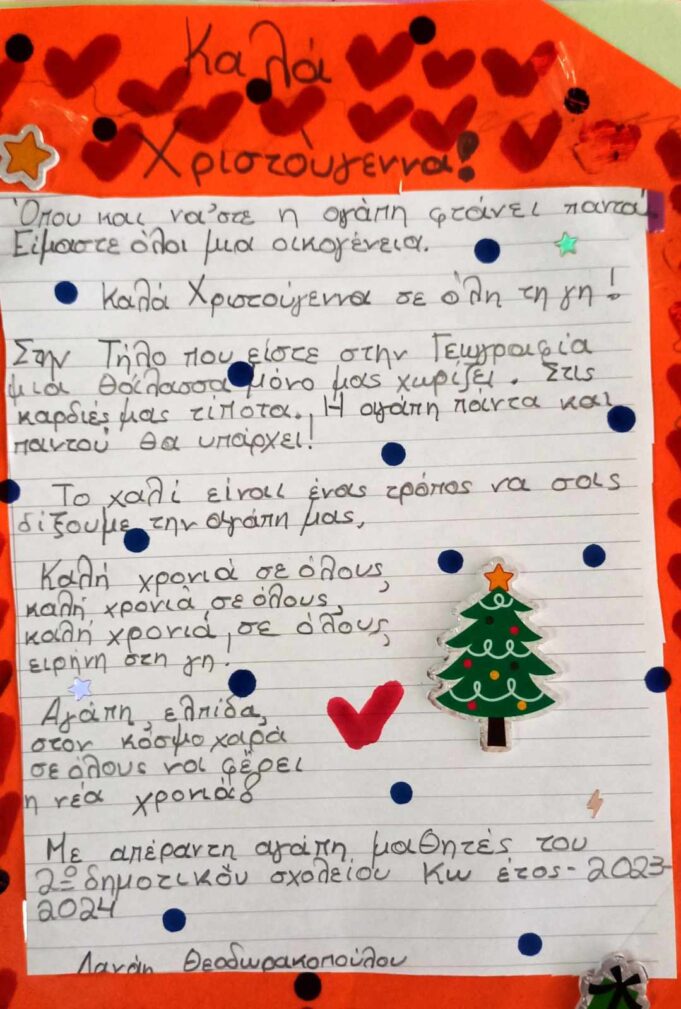 Καλά
Χριστούγεννα!
Όπου και να'στε η αγάπη φτάνει παντά
Είμαστε όλοι μια οικογένεια.
Καλά Χριστούγεννα σε όλη τη γη!
Στην Τήλο που είστε στην Γεωγραφία
μια θάλασσα μόνο μας χωρίζει. Στις
καρδιές μας τίποτα. Η αγάπη πάντα και
παντού θα υπάρχει!
Το χαλί είναι ένας τρόπος να σας
δίξουμε την αγάπη μας,
Καλή χρονιά σε όλους,
καλή χρονιά, σε όλους,
καλή χρονιά, σε όλους,
ειρήνη στη γη!
Αγάπη, ελπίδα,
στον κόσμο χαρά
σε όλους να φέρει
η νέα χρονιά
Με απέραντη αγάπη μαθητές του
2ο δημοτικού σχολείου Κω έτος-2023-
2024
Δανάη Θεοδωρακοπούλου